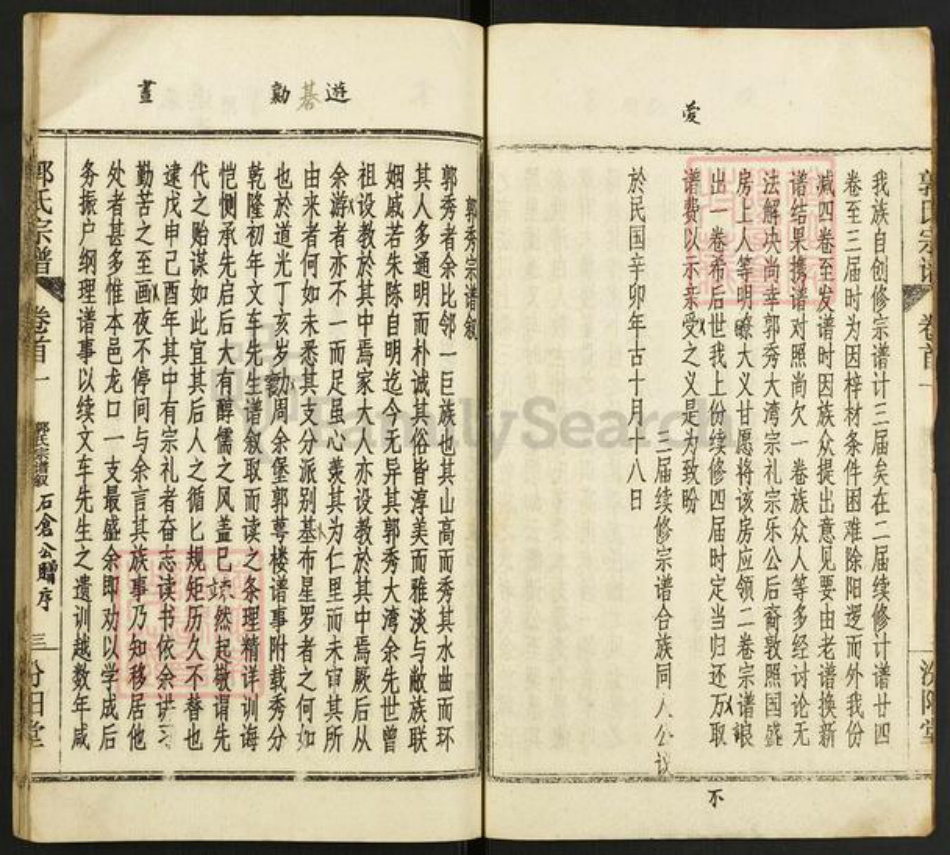 爱
郭氏宗谱 卷首一 汾阳堂
我族自创修宗谱计三届矣在二届续修计谱廿四
卷至三届时为因梓材条件困难除阳逻而外我份
减四卷至发谱时因族众提出意见要由老谱换新
谱结果携谱对照尚欠一卷族众人等多经讨论无
法解决尚幸郭秀大湾宗礼宗乐公后裔敦照国盛
房上人等明瞭大义甘愿将该房应领二卷宗谱
出一卷希后世我上份续修四届时定当归还万取
谱费以示亲受之义是为致盼
三届续修宗谱合族同人公议
於民国辛卯年古十月十八日
不
遊 碁 勷 晝
郭秀宗谱叙
郭秀者余比邻一巨族也其山高而秀其水曲而环
其人多通明而朴诚其俗皆淳美而雅淡与敝族联
姻戚若朱陈自明迄今无异其郭秀大湾余先世曾
祖设教於其中焉家大人亦设教於其中焉厥后从
余游者亦不一而足虽心羡其为仁里而未宙其所
由来者何如未悉其支分派别基布星罗者之何如
也於道光丁亥岁勷周余堡郭萼楼谱事附载秀分
乾隆初年文车先生谱叙取而读之条理精详训诲
恺恻承先启后大有醇儒之风盖已然起敬谓先
代之贻谋如此宜其后人之循匕规矩历久不替也
逮戊申己酉年其中有宗礼者奋志读书依余讲习
勤苦之至画夜不停间与余言其族事乃知移居他
处者甚多惟本邑龙口一支最盛余即劝以学成后
务振户纲理谱事以续文车先生之遗训越数年咸
郭氏宗谱 卷首一 郭氏宗谱叙 石倉公贈序 三 汾阳堂
FamilySearch